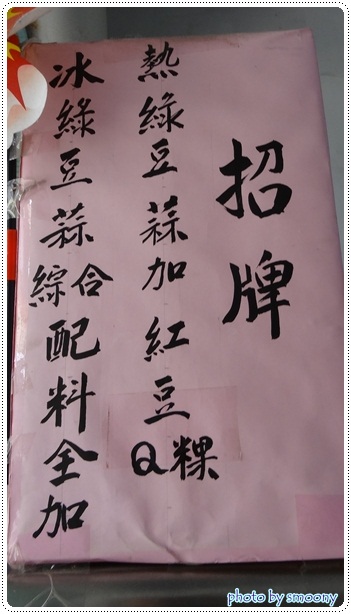 招牌
熱綠豆蒜加紅豆Q粿
冰綠豆蒜綜合配料全加
photo by smoony